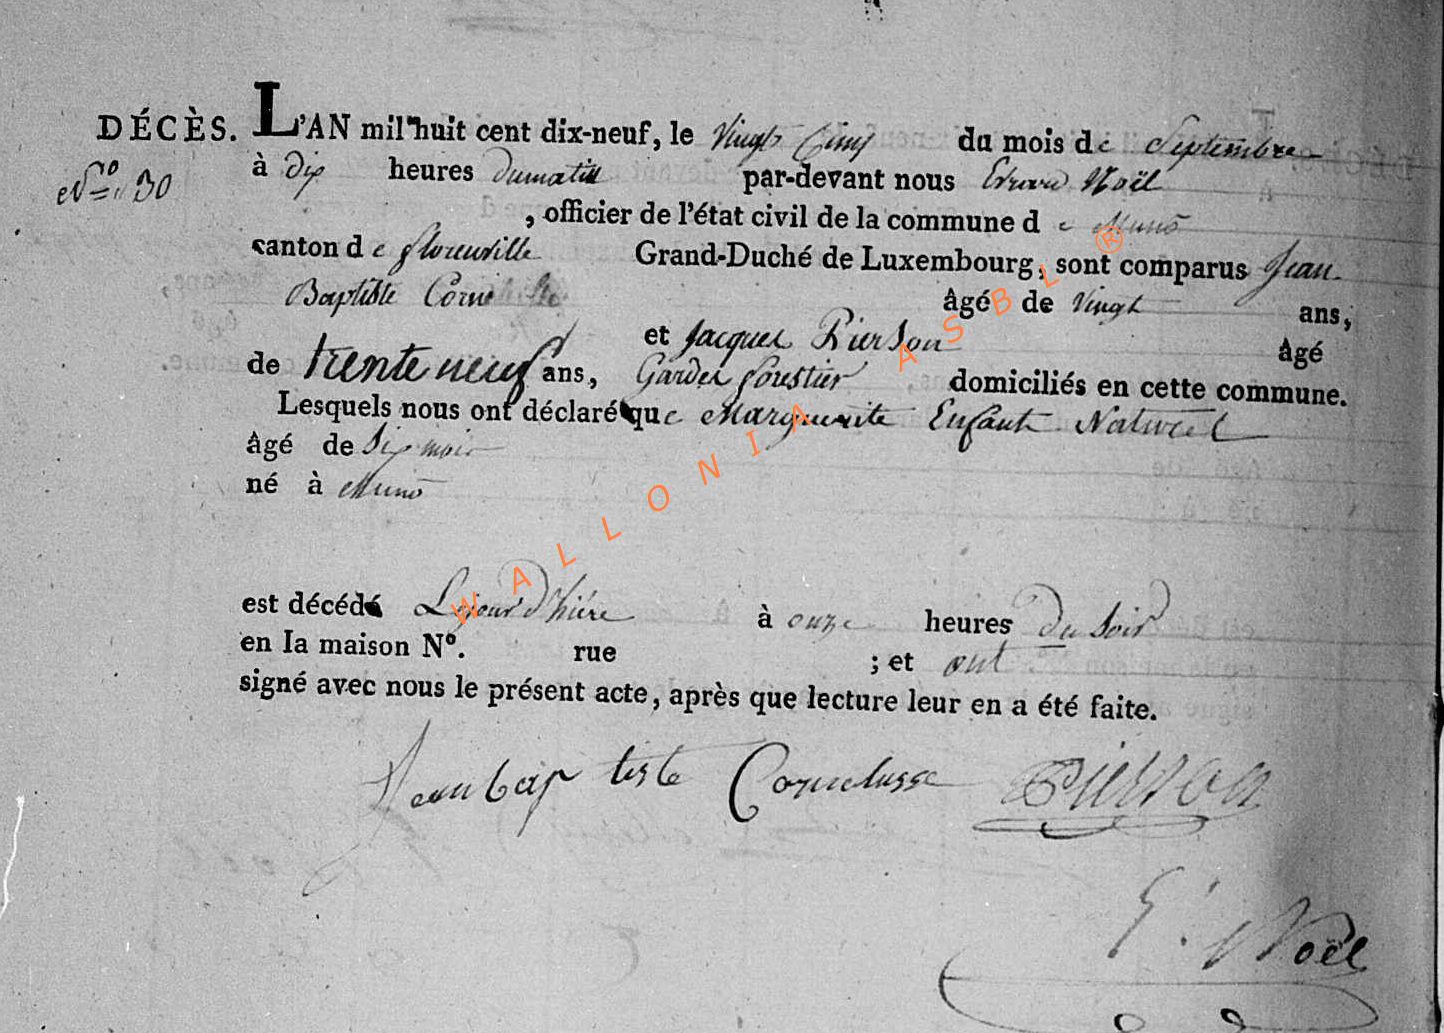 DÉCÈS. L'AN mil huit cent dix-neuf, le Vingt Cinq du mois de Septembre
N° 30
à dix heures dumatin par-devant nous Noël
, officier de l'état civil de la commune d e Muno
canton d e florenville Grand-Duché de Luxembourg, sont comparus Jean
Baptiste âgé de Vingt ans,
et Jacques Pierson âgé
de trente neuf ans, Gardes forestier domiciliés en cette commune.
Lesquels nous ont déclaré que Marguerite Enfant Naturel
âgé de Six mois
né à Muno
est décédé Le jour d'hiére à onze heures Du Soir
en la maison N°. rue ; et ont
signé avec nous le présent acte, après que lecture leur en a été faite.
Jean bap tiste Cornelusse Pierson
E. Noël
WALLONIA ASBL ®